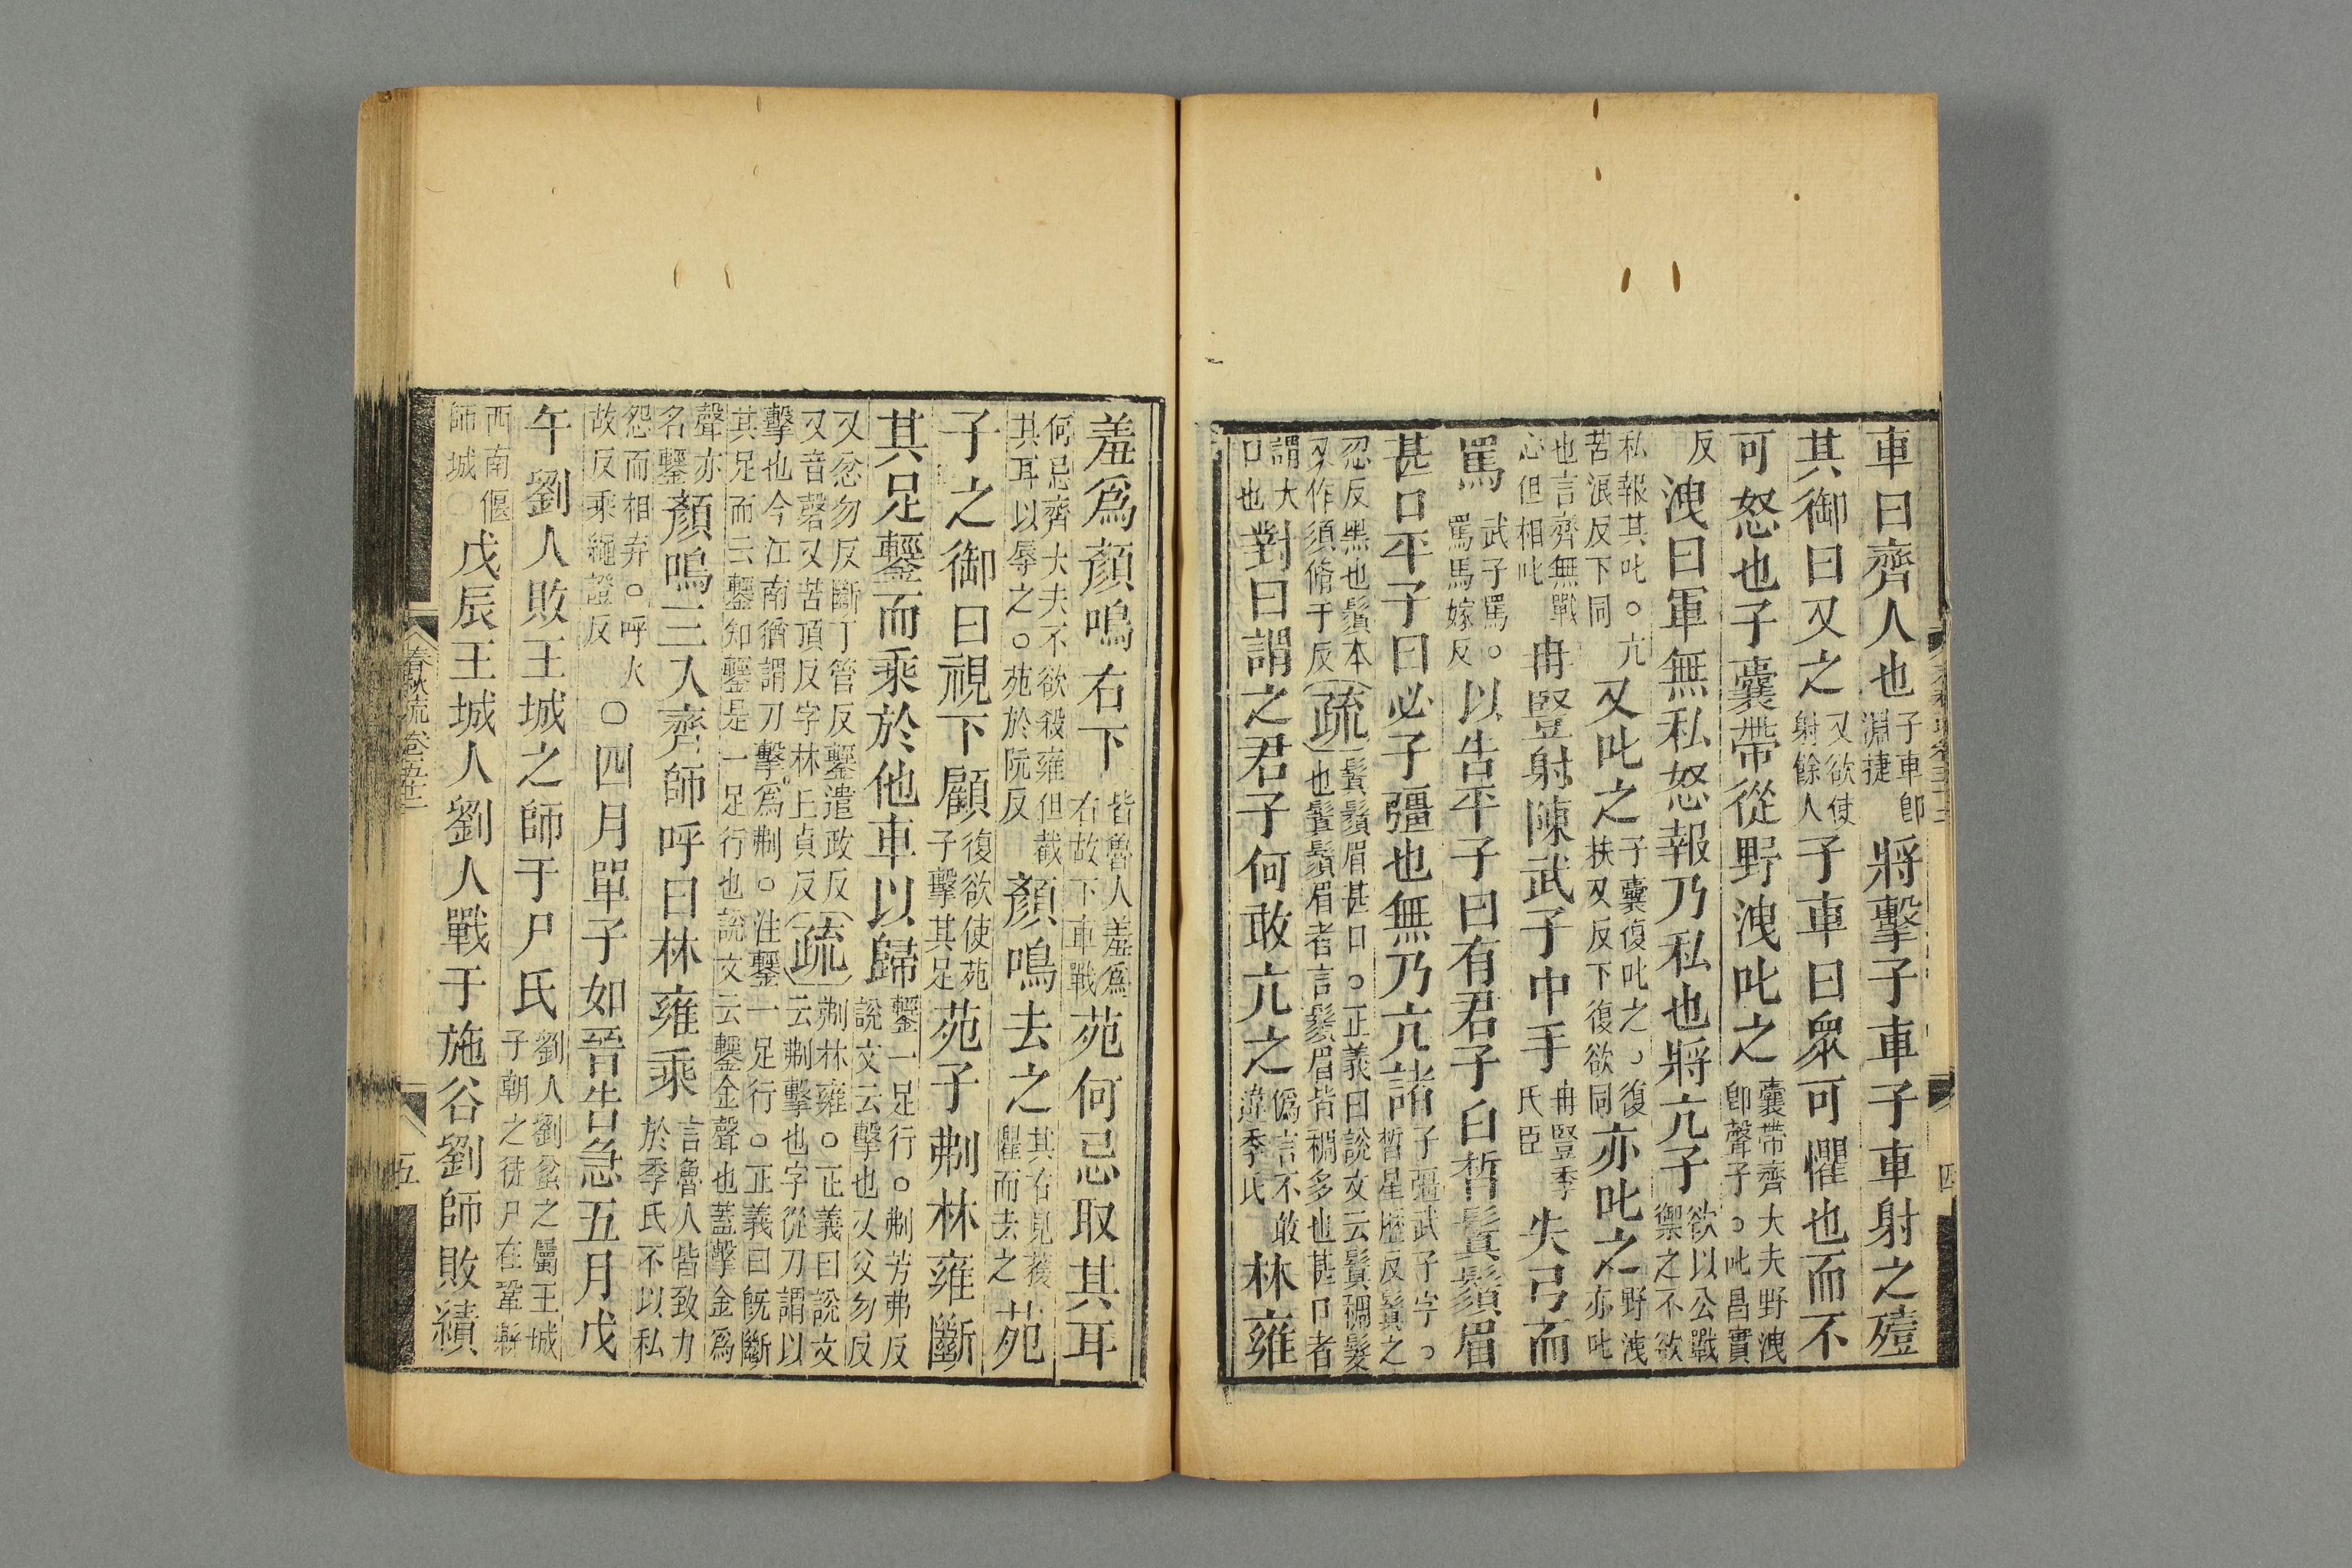 車曰齊人也子車即淵捷將擊子車子車射之殪
其御曰又之又欲使射餘人子車曰眾可懼也而不
可怒也子囊帶從野洩叱之囊帶齊大夫野洩即聲子○叱昌實
反洩曰軍無私怒報乃私也將亢子欲以公戰禦之不欲
私報其叱○亢苦浪反下同又叱之子囊復叱之○復扶又反下復欲同亦叱之野洩亦叱
也言齊無戰心但相叱冉豎射陳武子中手冉豎季氏臣失弓而
罵武子罵○罵馬嫁反以告平子曰有君子白皙鬒鬚眉
甚口平子曰必子彊也無乃亢諸子彊武子字○皙星歷反鬒之
忍反黑也鬚本又作須脩于反疏鬒鬚眉甚口○正義曰說文云鬒稠髮也鬒鬚眉者言鬚眉皆稠多也甚口者
謂大口也對曰謂之君子何敢亢之偽言不敢違季氏林雍
羞爲顏鳴右下皆魯人羞爲右故下車戰苑何忌取其耳
何忌齊大夫不欲殺雍但截其耳以辱之○苑於阮反顏鳴去之其右見獲懼而去之苑
子之御曰視下顧復欲使苑子擊其足苑子刜林雍斷
其足鑋而乘於他車以歸鑋一足行○刜芳弗反說文云擊也又父勿反
又忿勿反斷丁管反鑋遣政反又音磬又苦頂反字林上貞反疏刜林雍○正義曰說文云刜擊也字從刀謂以
擊也今江南猶謂刀擊爲刜○注鑋一足行○正義曰旣斷其足而云鑋知鑋是一足行也說文云鑋金聲也蓋擊金爲
聲亦名鑋顏鳴三入齊師呼曰林雍乘言魯人皆致力於季氏不以私
怨而相弃○呼火故反乘繩證反○四月單子如晉告急五月戊
午劉人敗王城之師于尸氏劉人劉蚠之屬王城子朝之徒尸在鞏縣
西南偃師城○戊辰王城人劉人戰于施谷劉師敗績
春秋疏卷五十二
五